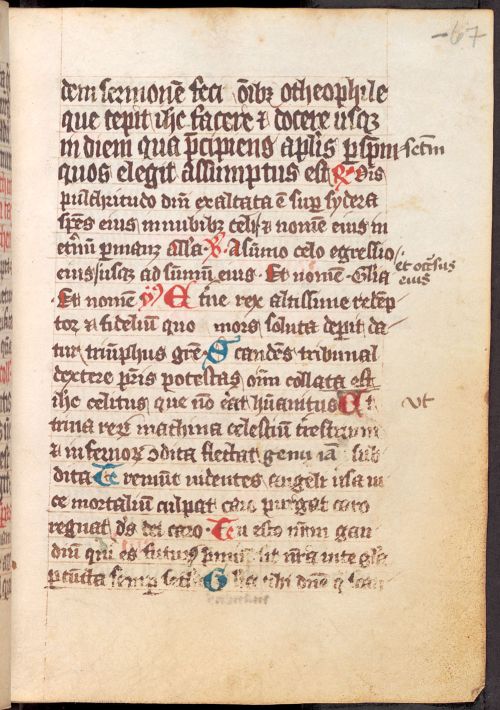 67
dem sermonē feci oībꝫ otheophile
que cepit ihc facere ⁊ docere usqꝫ
in diem qua p̄cipiens aplīs p̱ spm̄ sctm̄
quos elegit assumptus est R̷ Oīs
pulchritudo dn̄i exaltata ē sup̱ sydera
spēs eius in nubibꝫ celi ⁊ nomē eius in
et̄nū permanꝫ alla V̷ A sūmo celo egressio
eius usqꝫ ad sūmū eius Et nomē Glīa et occ̄sus eius
Et nomē ym̄ Et̄ne rex altissime redēp
tor ⁊ fidelium quo mors soluta deperit da
tur triūphus grē Scandēs tribunal
dextere pr̄is potestas oīm collata est
ihc celitus que nō erat hūanitus Ut ut
trina reꝝ machina celestiū trestrium
⁊ infernoꝝ 9dita flectat genu iā sub
dita Tremūt videntes angeli v̄sa vi
ce mortaliū culpat caro purgat caro
regnat ds dei caro Tu esto nr̄m gau
diū qui es futurꝰ p̄miū sit nr̄a in te glīa
p̱ cūcta semp̱ Glīa tibi dn̄e q